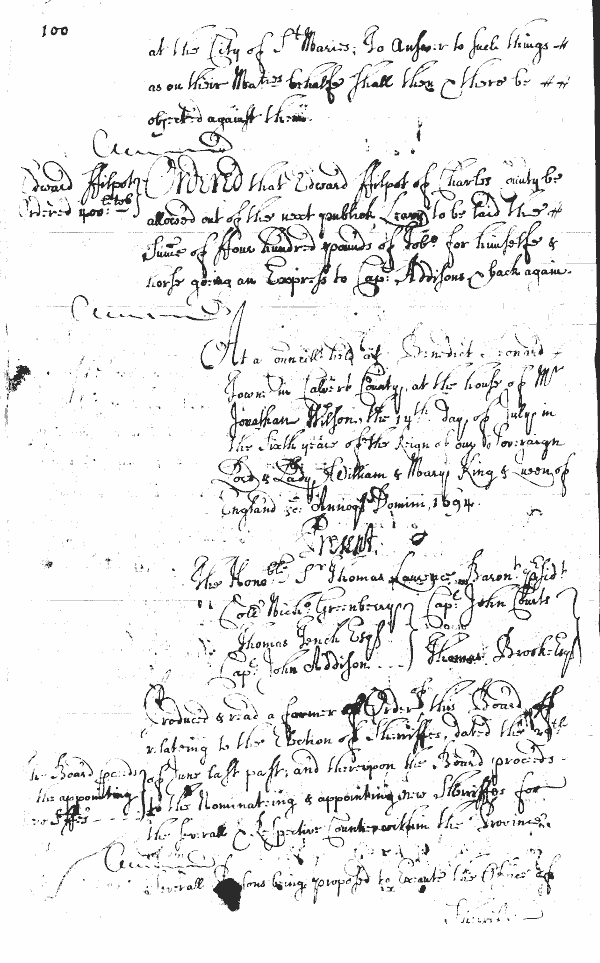 100
at the City of St Maries; To Answer to such things
as on their Maties behalfe shall then & there be
objected against them.
Edward ffilpot
Ordered 400: tob
Ordered that Edward ffilpot of Charles County be
allowed out of the next publick Leavy to be laid the
Sume of ffour hundred pounds of Tobo for himselfe &
horse going an Express to Capt Addisons & back again.
At a Councill held at Benedict Leonard
Towne in Calvert County, at the house of Mr
Jonathan Wilson, the 14th day of July, in
the Sixth yeare of the Reign of our Soveraign
Lord & Lady, William & Mary, King & Queen of
England &c: Annoq Domini, 1694.
Present,
The Honoble Sr Thomas Laurence Baront Presidt
Coll Nicho Greenberry Capt John Courts
Thomas Tench Esqr
Capt John Addison Thomas Brooke Esqr
Produced & read a former Order of this Board
relating to the Election of Sheriffes, dated the
The Board proceeds
of June last past; and thereupon the Board proceeds
to the appointing
to the Nominateing & appointing new Sheriffes for
Sheriffes
the severall & respective Counties within this Province.
Severall persons being proposed to Execute the Office of
Sheriffe